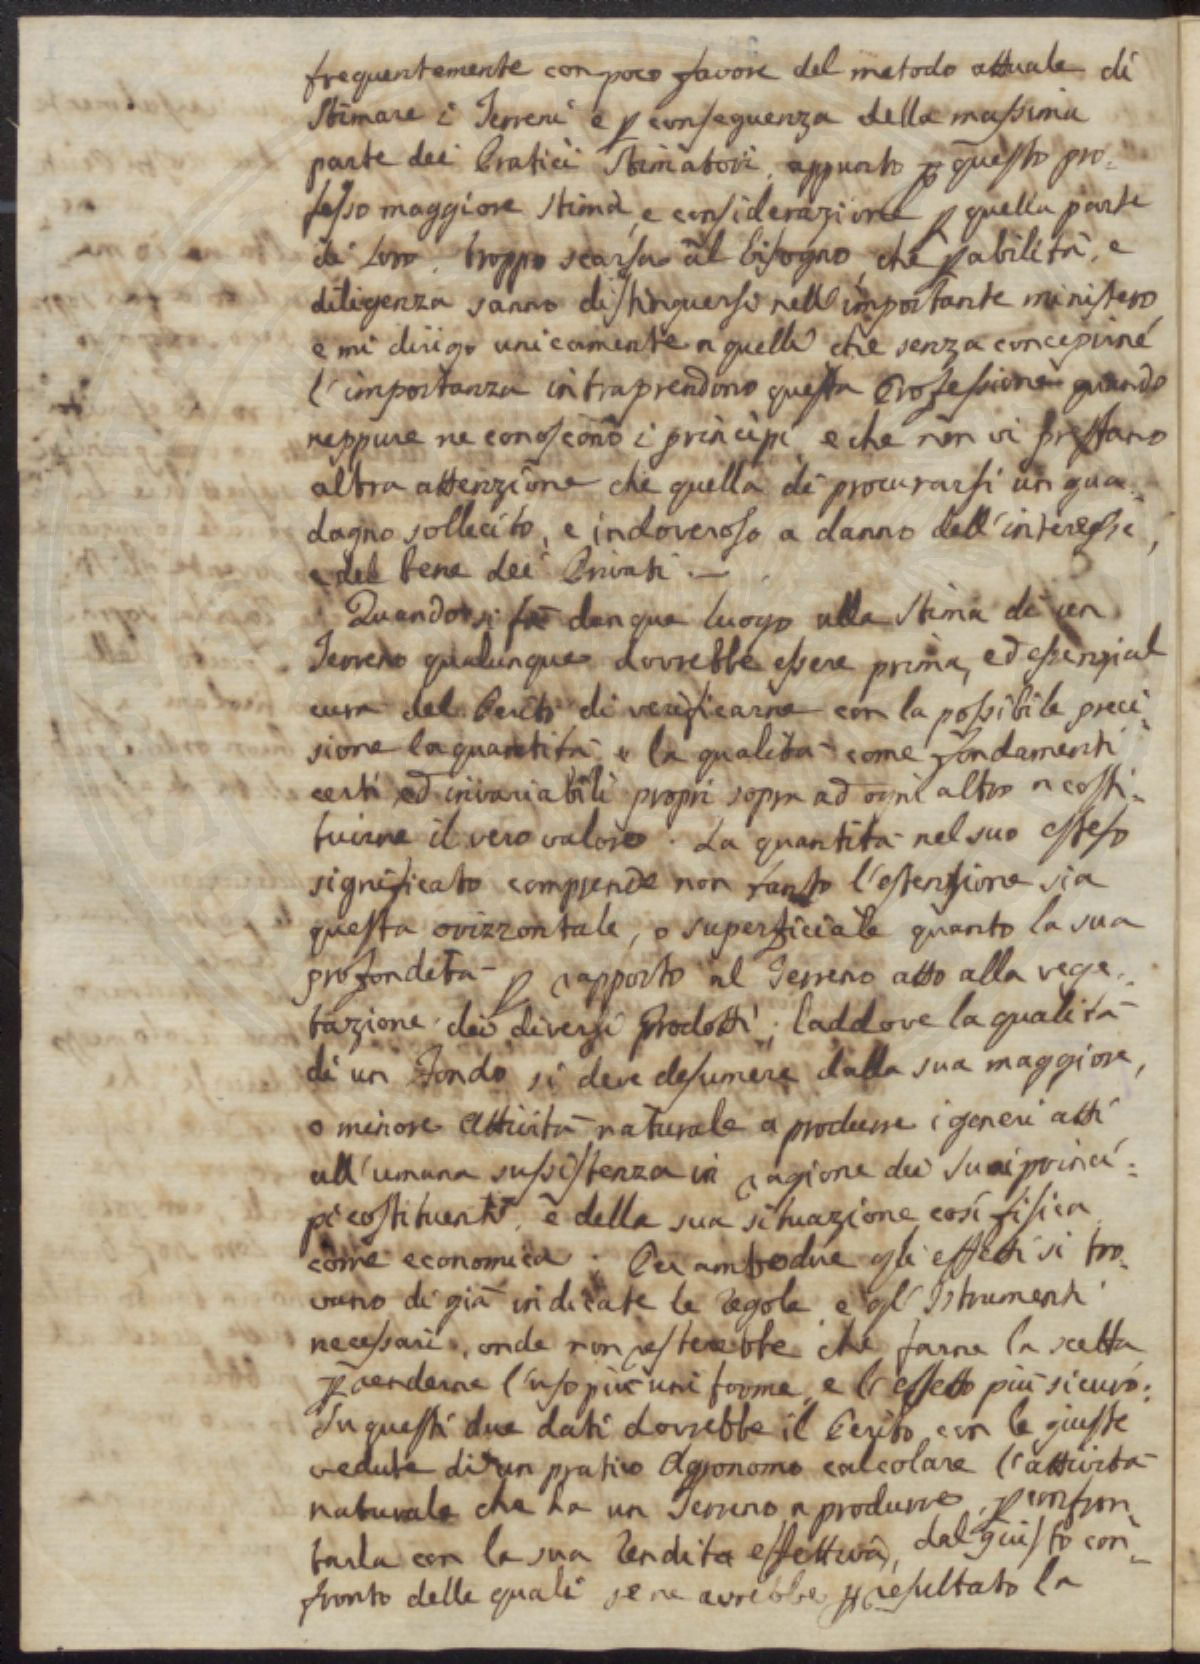 frequentemente con poco favore del metodo attuale di
Stimare i Terreni e p conseguenza della massima
parte dei Pratici Stimatori, appunto p questo pro-
fesso maggiore stima, e considerazione p quella parte
di Loro, troppo scarsa al bisogno, che p abilità, e
diligenza sanno distinguersi nell'importante ministero,
e mi dirigo unicamente a quelli che senza concepirne
l'importanza intraprendono questa Professione quando
neppure ne conoscono i principi, e che non vi prestano
altra attenzione che quella di procurarsi un gua-
dagno sollecito, e indoveroso a danno dell'interesse,
e del bene dei Privati. —
Quando si fà dunque luogo alla Stima di un
Terreno qualunque dovrebbe essere prima, ed essenzial
cura del Perito di verificarne con la possibile preci-
sione la quantità e la qualità come fondamenti
certi ed invariabili propri sopra ad ogni altro a costi-
tuirne il vero valore. La quantità nel suo esteso
significato comprende non tanto l'estensione sia
questa orizzontale, o superficiale quanto la sua
profondità p rapporto al Terreno atto alla vege-
tazione dei diversi Prodotti; laddove la qualità
di un Fondo si deve desumere dalla sua maggiore,
o minore attività naturale a produrre i generi atti
all'umana sussistenza in ragione dei Suoi princi-
pi costituenti, e della sua situazione così fisica
come economica. Per ambedue gli effetti si tro-
vano di già indicate le regole e gl'Istrumenti
necessari, onde non resterebbe che farne la scelta
p renderne l'uso più uniforme, e l'effetto più sicuro.
Su questi due dati dovrebbe il Perito con le giuste
vedute di un pratico Agronomo calcolare l'attività
naturale che ha un Terreno a produrre, p confron-
tarla con la sua Rendita effettiva, dal giusto con-
fronto delle quali se ne avrebbe p resultato la